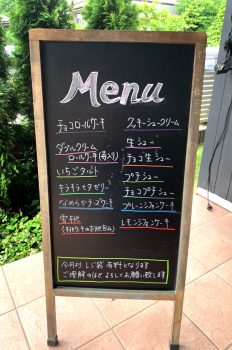 Menu
チョコロールケーキ
ダブルクリーム
ロールケーキ(箱入り)
いちごタルト
キラキラゼリー
なめらかチーズケーキ
クッキーシュークリーム
生シュー
チョコ生シュー
プチシュー
チョコプチシュー
プレーンシフォンケーキ
レモンシフォンケーキ
今月より レジ袋 有料となります
ご理解のほど よろしくお願い致します